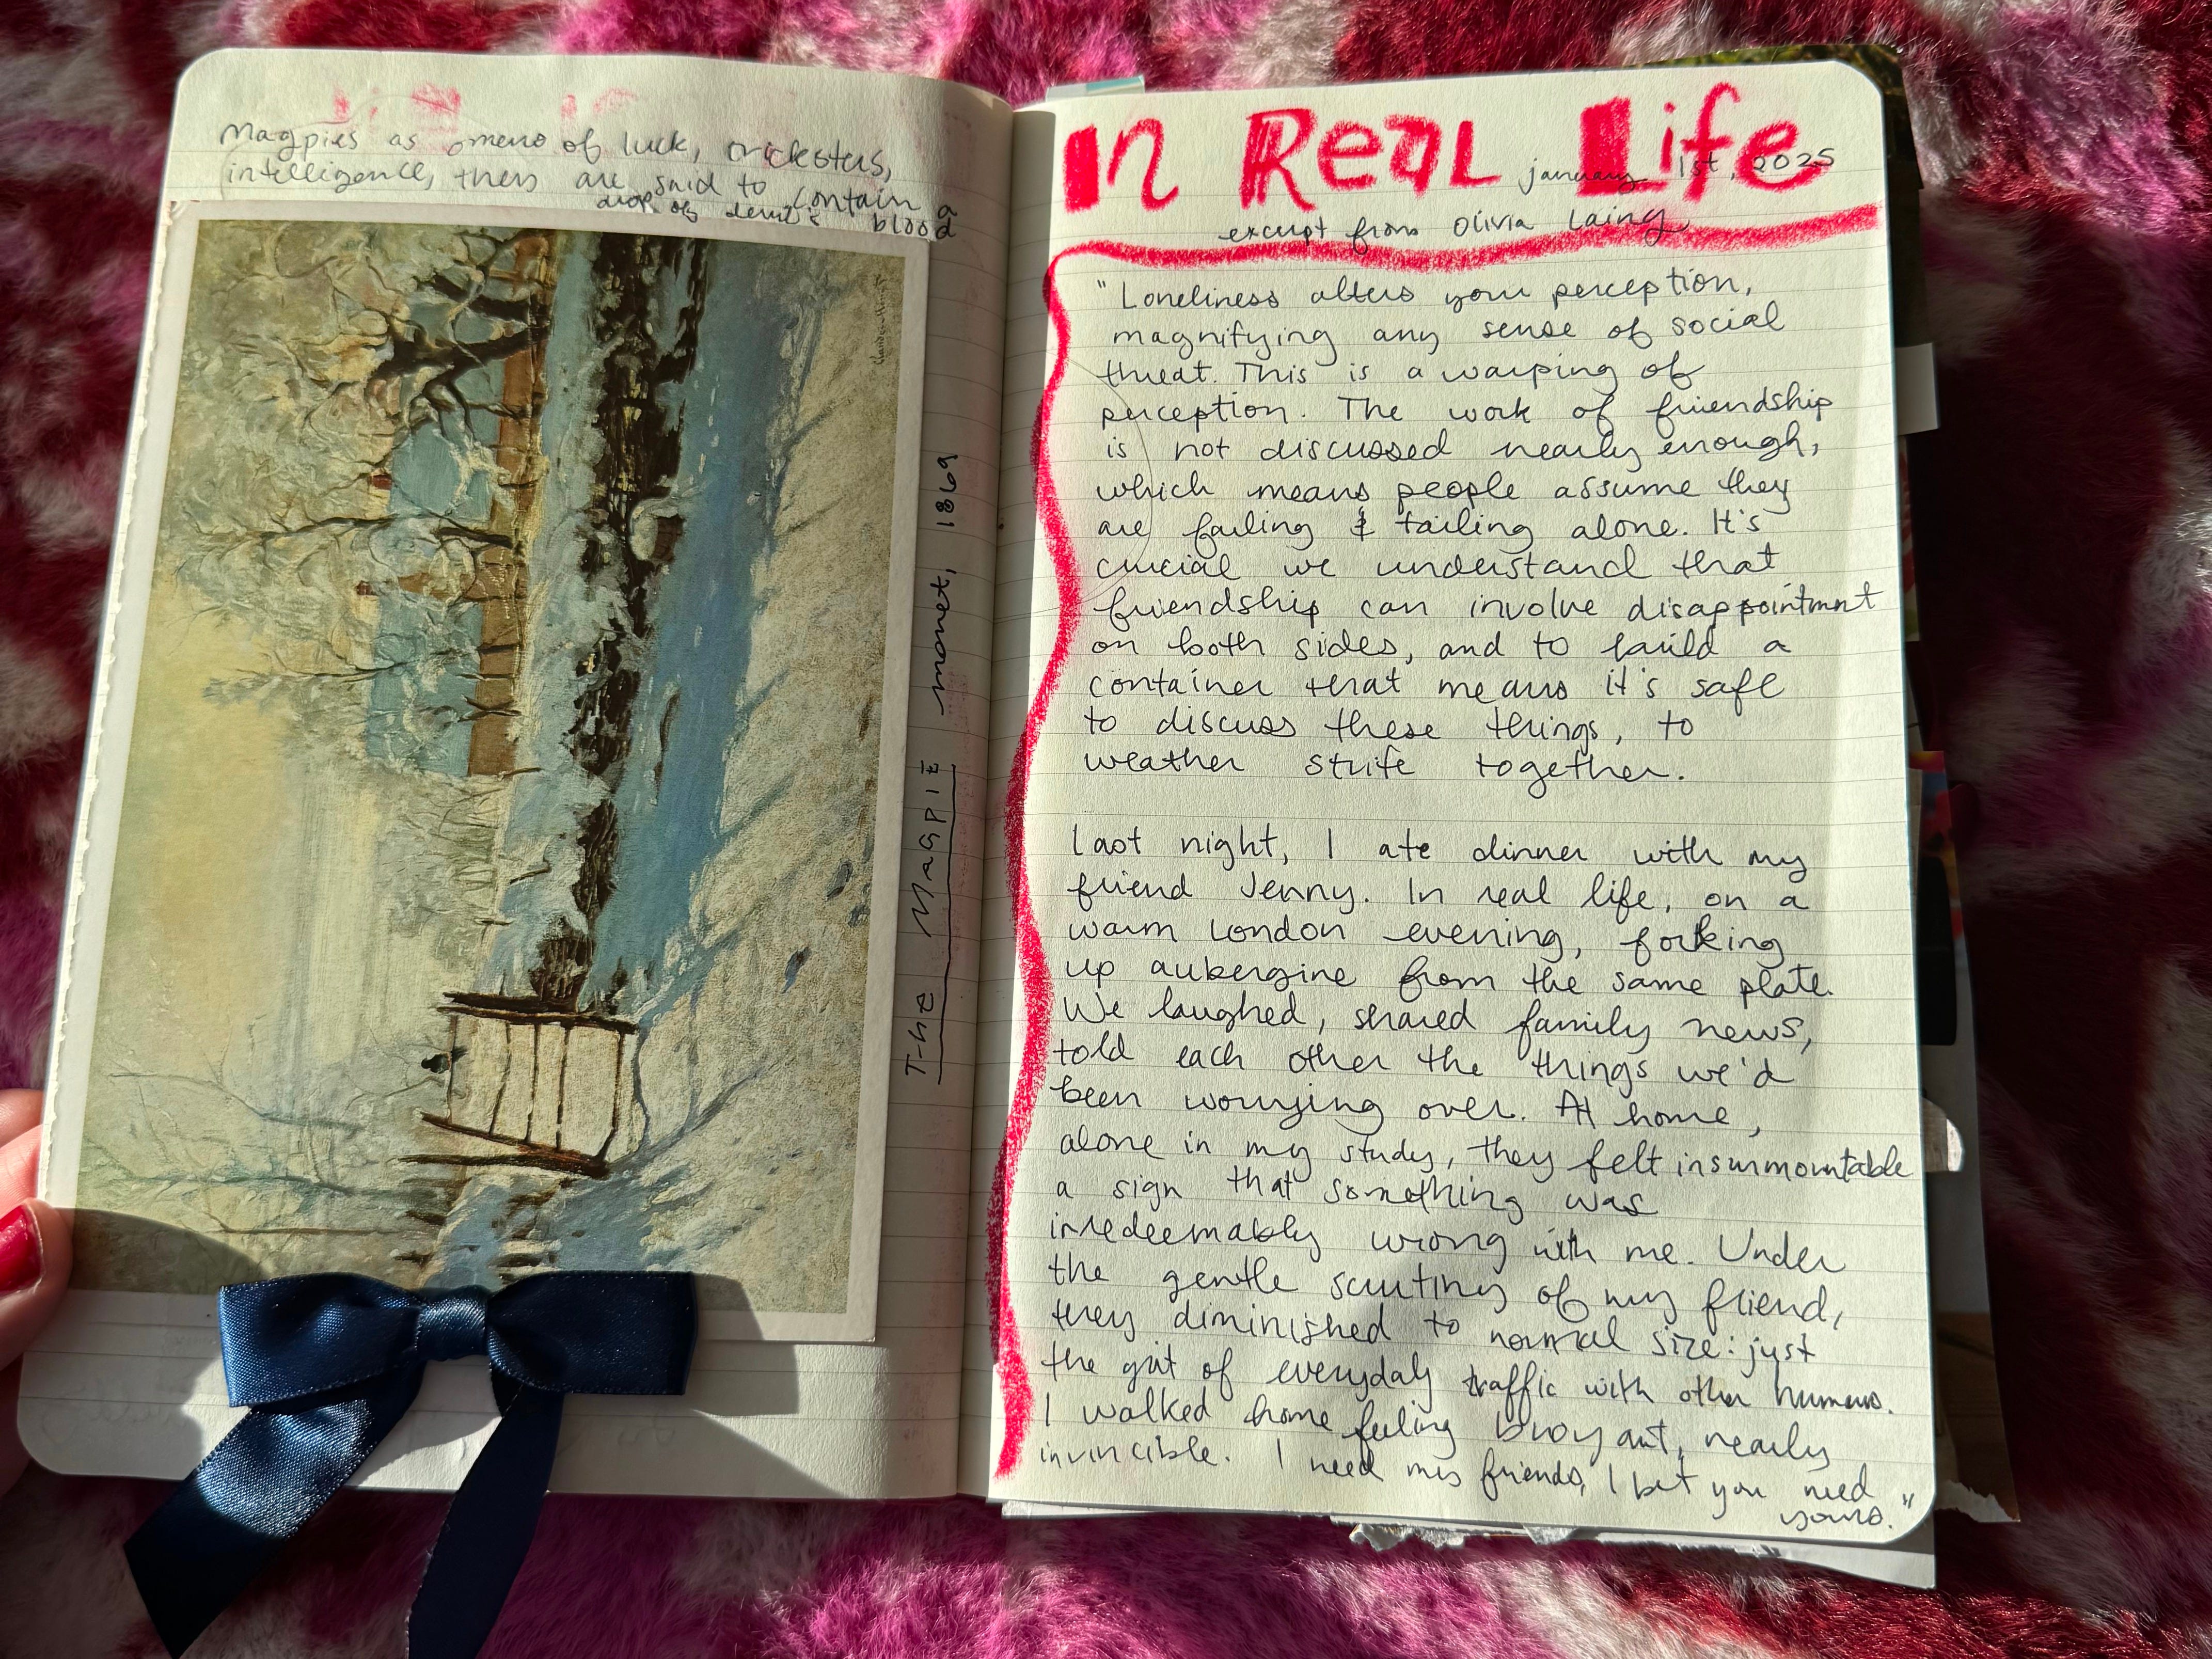 Magpies as omens of luck, tricksters,
intelligence, theys are said to contain a
drop of devil's blood
Claude Monet
The Magpie monet, 1869
In Real Life
january 1st, 2025
excerpt from Olivia Laing
"Loneliness alters your perception,
magnifying any sense of social
threat. This is a warping of
perception. The work of friendship
is not discussed nearly enough,
which means people assume they
are failing & failing alone. It's
crucial we understand that
friendship can involve disappointment
on both sides, and to build a
container that means it's safe
to discuss these things, to
weather strife together.
Last night, I ate dinner with my
friend Jenny. In real life, on a
warm London evening, forking
up aubergine from the same plate.
We laughed, shared family news,
told each other the things we'd
been worrying over. At home,
alone in my study, they felt insurmountable
a sign that something was
irredeemably wrong with me. Under
the gentle scrutiny of my friend,
they diminished to normal size: just
the grit of everyday traffic with other humans.
I walked home feeling buoyant, nearly
invincible. I need my friends, I bet you need
yours."